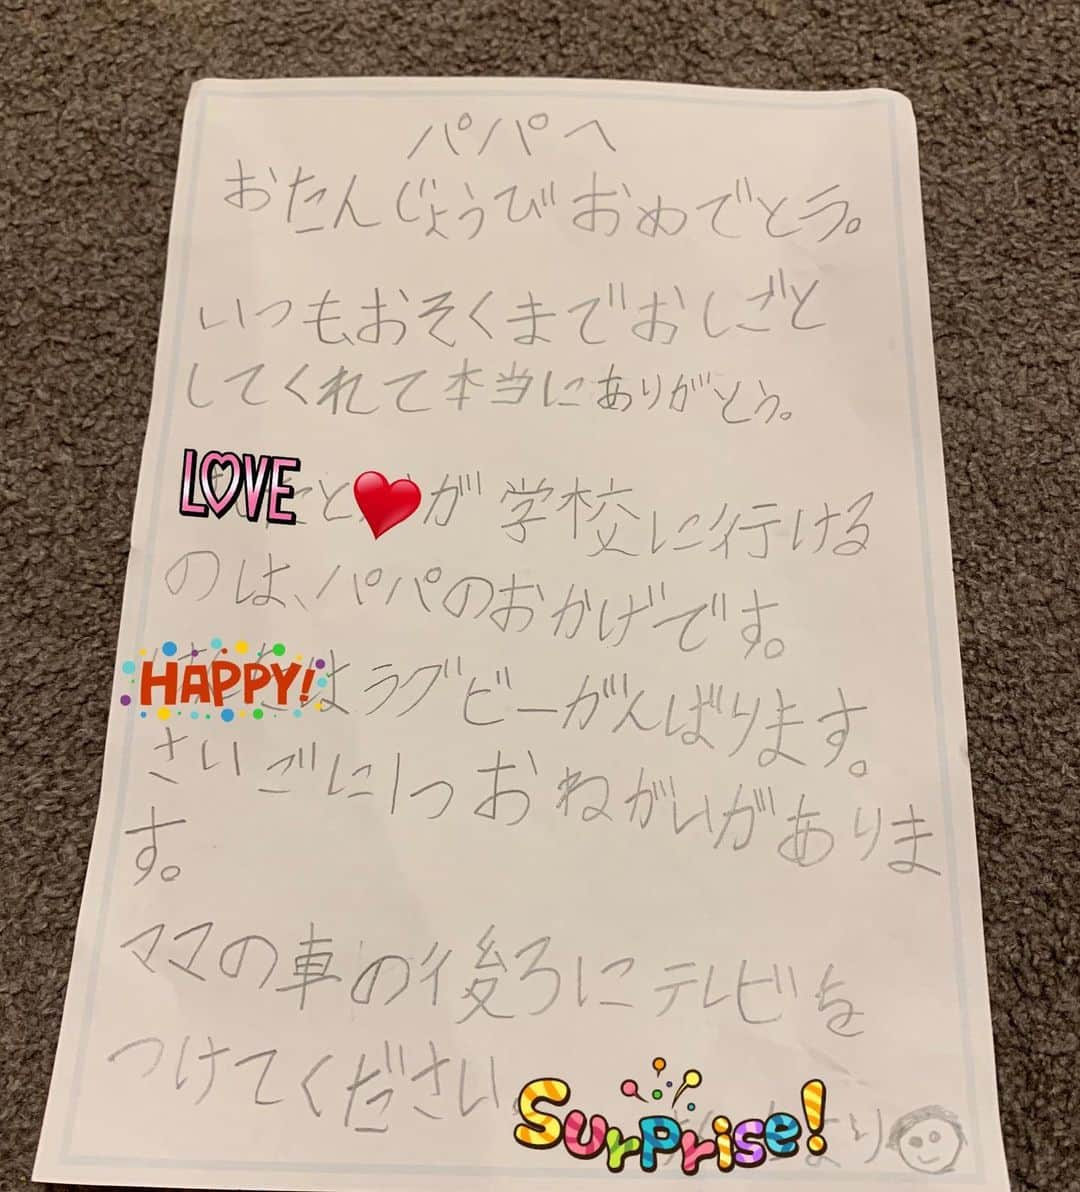 パパへ
おたんじょうびおめでとう。
いつも、おそくまでおしごと
してくれて本当にありがとう。
LOVE と が学校に行ける
のは、パパのおかげです。
HAPPY! はラグビーがんばります。
さいごに1つおねがいがありま
す。
ママの車の後ろにテレビを
つけてください
Surprise! より